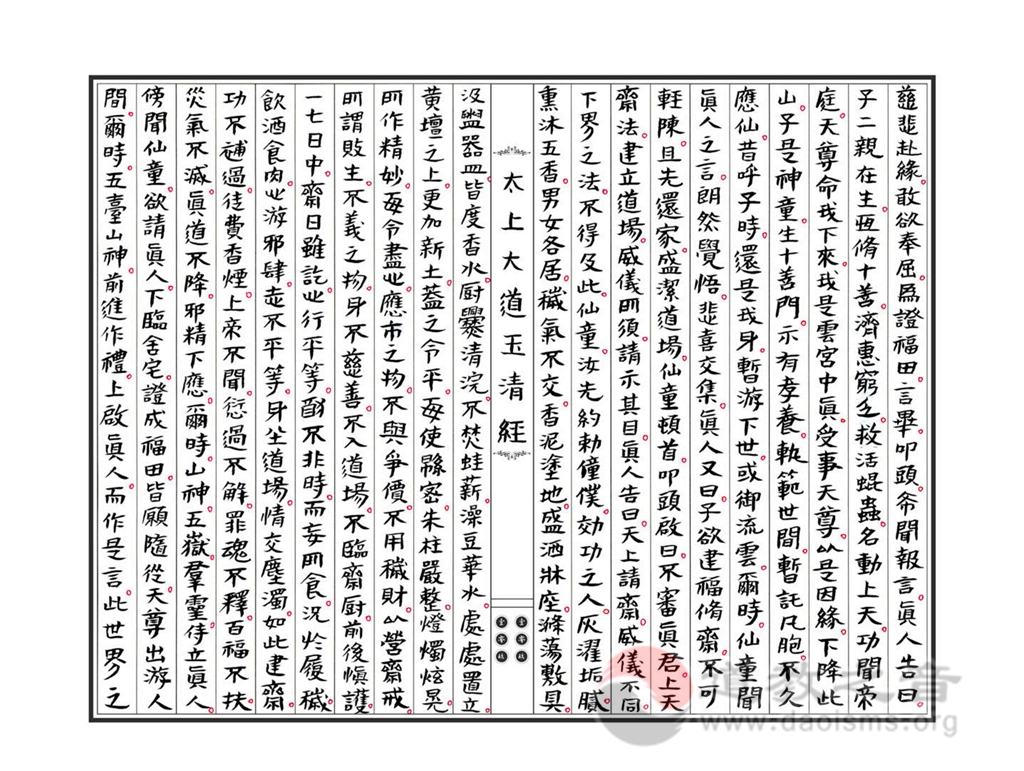 慈悲赴緣敢欲奉屈爲證福田言畢叩頭希聞報言眞人告曰
子二親在生恆脩十善濟惠窮乏救活蜫蟲名動上天功聞帝
庭天尊命我下來我是雲宮中眞受事天尊以是因緣下降此
山子是神童生十善門示有孝養軌範世間暫託凡胞不久
應仙昔呼子時還是我身暫游下世或御流雲爾時仙童聞
眞人之言朗然覺悟悲喜交集眞人又曰子欲建福脩齋不可
輕陳且先還家盛潔道場仙童頓首叩頭啟曰不審眞君上天
齋法建立道場威儀所須請示其目眞人告曰天上請齋威儀不同
下界之法不得及此仙童汝先約勅僮僕効功之人灰濯垢膩
熏沐五香男女各居穢氣不交香泥塗地盛洒牀座滌蕩敷具
太上大道玉清經
汲盥器皿皆度香水厨爨清浣不焚蛙薪澡豆華水處處置立
黃壇之上更加新土蓋之令平每使緜密朱柱嚴整燈燭炫晃
所作精妙每令盡心應市之物不與爭價不用穢財以營齋戒
所謂敗生不義之物身不慈善不入道場不臨齋厨前後愼護
一七日中齋日雖訖心行平等酌不非時而妄所食況於履穢
飲酒食肉心游邪肆志不平等身坐道場情交塵濁如此建齋
功不補過徒費香煙上帝不聞愆過不解罪魂不釋百福不扶
災氣不滅眞道不降邪精下應爾時山神五嶽羣靈侍立眞人
傍聞仙童欲請眞人下臨舍宅證成福田皆願隨從天尊出游人
間爾時五臺山神前進作禮上啟眞人而作是言此世界之
道教之音
www.daoisms.org